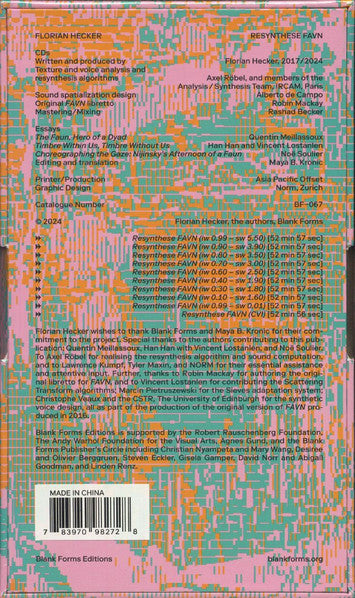 FLORIAN HECKER RESYNTHESE FAVN
CDs
Written and produced by Florian Hecker, 2017/2024
Texture and voice analysis and
resynthesis algorithms Axel Röbel, and members of the
Analysis / Synthesis Team, IRCAM, Paris
Sound spatialization design Alberto de Campo
Original FAVN libretto Robin Mackay
Mastering/Mixing Rashad Becker
Essays
The Faun, Hero of a Dyad Quentin Meillassoux
Timbre Within Us, Timbre Without Us Han Han and Vincent Lostanlen
Choreographing the Gaze: Nijinsky's Afternoon of a Faun Noé Soulier
Editing and translation Maya B. Kronic
Printer/Production Asia Pacific Offset
Graphic Design Norm, Zurich
Catalogue Number BF-067
© 2024 Florian Hecker, the authors, Blank Forms
Resynthese FAVN (iw 0.99 – sw 5.50) [52 min 57 sec]
Resynthese FAVN (iw 0.90 – sw 3.90) [52 min 57 sec]
Resynthese FAVN (iw 0.80 – sw 3.50) [52 min 57 sec]
Resynthese FAVN (iw 0.70 – sw 3.00) [52 min 57 sec]
Resynthese FAVN (iw 0.60 – sw 2.50) [52 min 57 sec]
Resynthese FAVN (iw 0.40 – sw 1.90) [52 min 57 sec]
Resynthese FAVN (iw 0.30 – sw 1.80) [52 min 57 sec]
Resynthese FAVN (iw 0.10 – sw 1.60) [52 min 57 sec]
Resynthese FAVN (iw 0.99 – sw 0.01) [52 min 57 sec]
Resynthese FAVN (CVI) [52 min 56 sec]
Florian Hecker wishes to thank Blank Forms and Maya B. Kronic for their com-
mitment to the project. Special thanks to the authors contributing to this pub-
lication; Quentin Meillassoux, Han Han with Vincent Lostanlen, and Noé Soulier.
To Axel Röbel for realising the resynthesis algorithm and sound computation,
and to Lawrence Kumpf, Tyler Maxin, and NORM for their essential assistance
and attentive input. Further, thanks to Robin Mackay for authoring the origi-
nal libretto for FAVN, and to Vincent Lostanlen for contributing the Scattering
Transform algorithms; Marcin Pietruszewski for the Sieves adaptation system;
Christophe Veaux and the CSTR, The University of Edinburgh for the synthetic
voice design, all as part of the production of the original version of FAVN pro-
duced in 2016.
Blank Forms Editions is supported by the Robert Rauschenberg Foundation,
The Andy Warhol Foundation for the Visual Arts, Agnes Gund, and the Blank
Forms Publisher's Circle including Christian Nyampeta and Mary Wang, Desiree
and Olivier Berggruen, Steven Eckler, Gisela Gamper, David Norr and Abigail
Goodman, and Linden Renz.
MADE IN CHINA
7 83970 98272 8
Blank Forms Editions blankforms.org